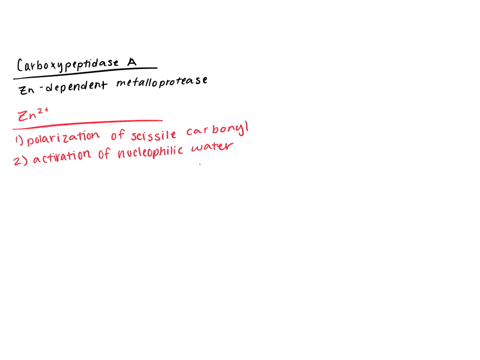 Carboxypeptidase A
Zn-dependent metalloprotease
Zn2+
1) polarization of scissile carbonyl
2) activation of nucleophilic water